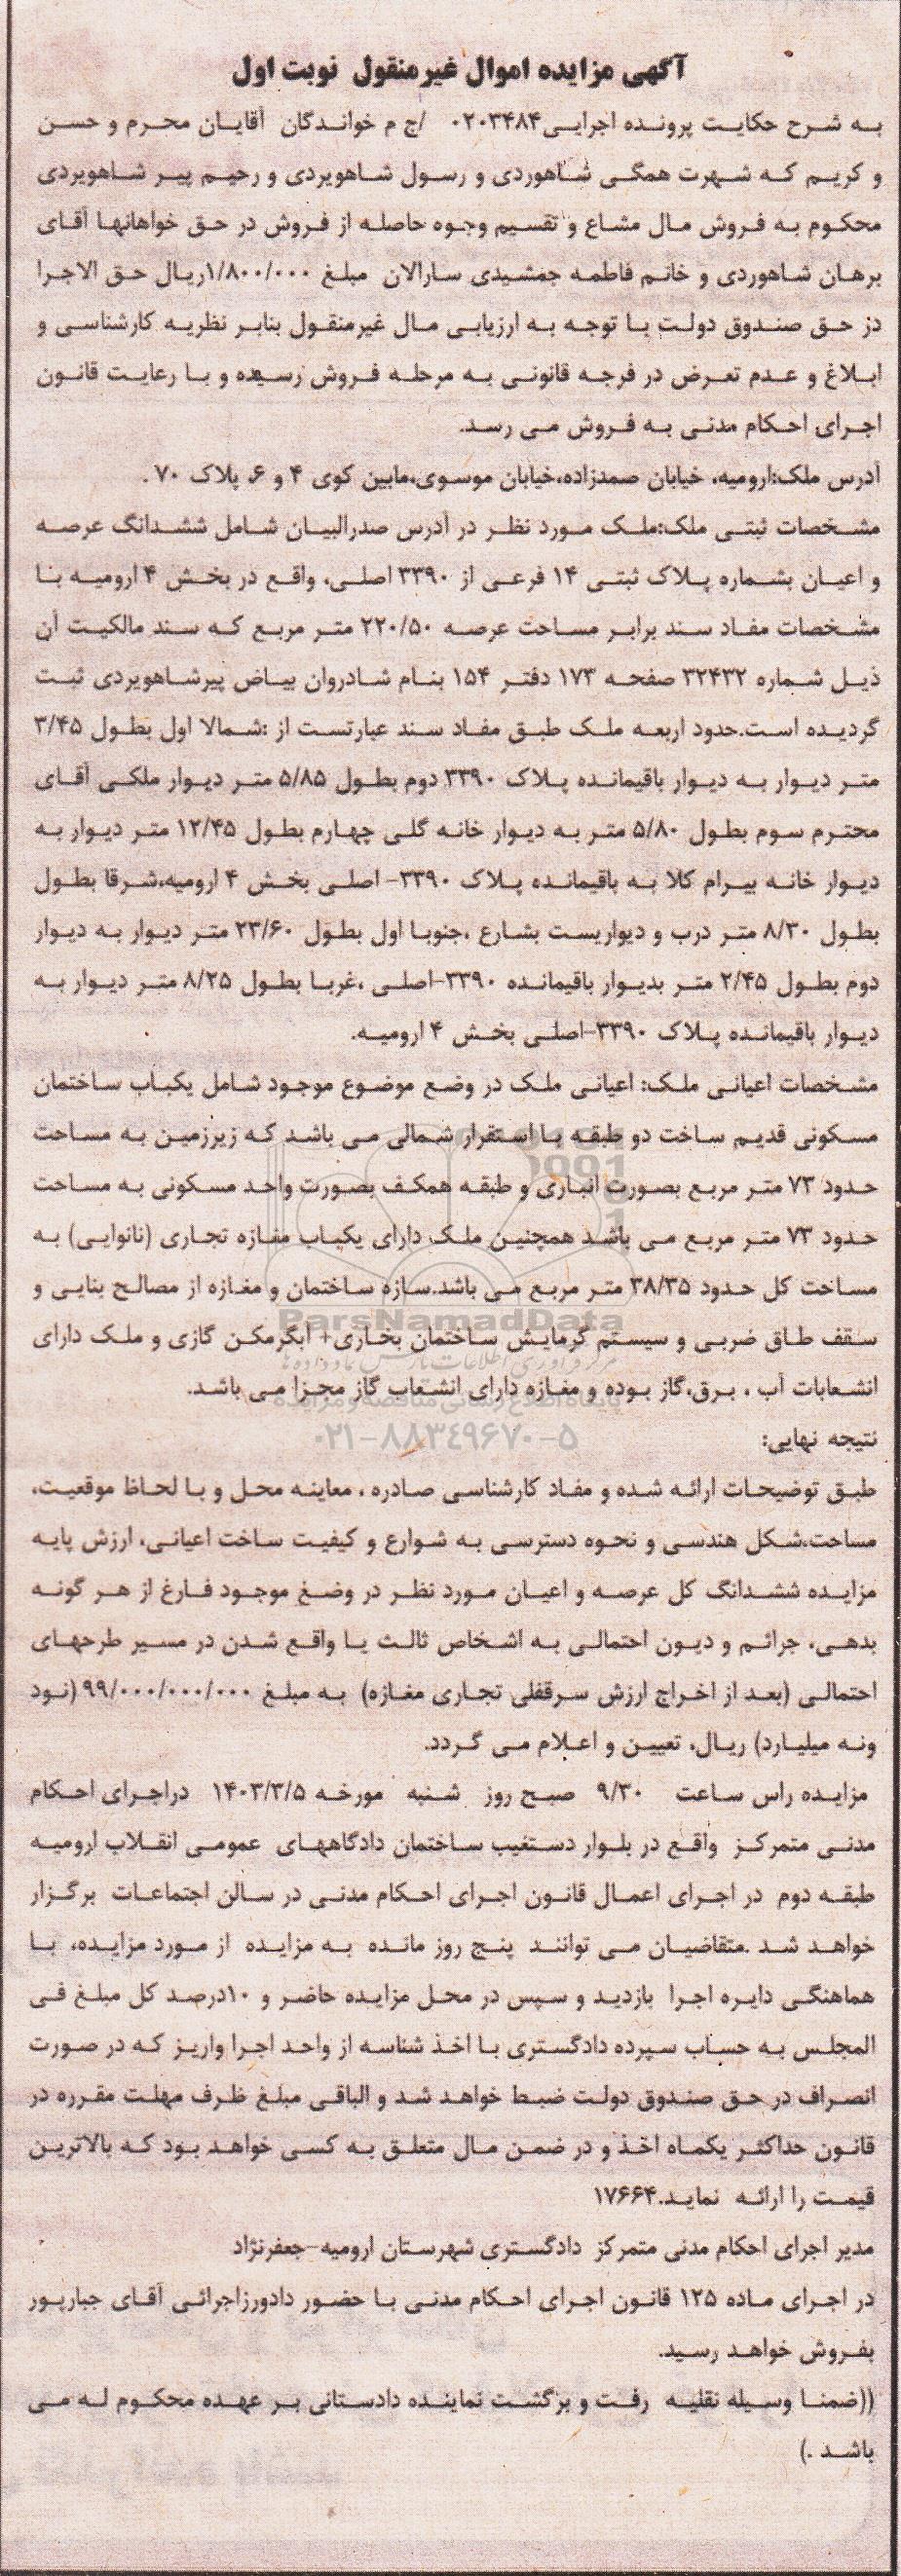 آگهی مزایده اموال غیرمنقول نوبت اول
به شرح حکایت پرونده اجرایی۰۲۰۳۴۸۴ /ج م خواندگان آقایان محرم و حسن
و کریم که شهرت همگی شاهوردی و رسول شاهویردی و رحیم پیر شاهویردی
محکوم به فروش مال مشاع و تقسیم وجوه حاصله از فروش در حق خواهانها آقای
برهان شاهوردی و خانم فاطمه جمشیدی سارالان مبلغ ۱/۸۰۰/۰۰۰ریال حق الاجرا
در حق صندوق دولت با توجه به ارزیابی مال غیرمنقول بنابر نظریه کارشناسی و
ابلاغ و عدم تعرض در فرجه قانونی به مرحله فروش رسیده و با رعایت قانون
اجرای احکام مدنی به فروش می رسد.
آدرس ملک:ارومیه، خیابان صمدزاده،خیابان موسوی،مابین کوی ۴ و ۶، پلاک ۷۰ .
مشخصات ثبتی ملک:ملک مورد نظر در آدرس صدرالبیان شامل ششدانگ عرصه
و اعیان بشماره پلاک ثبتی ۱۴ فرعی از ۳۳۹۰ اصلی، واقع در بخش ۴ ارومیه با
مشخصات مفاد سند برابر مساحت عرصه ۲۲۰/۵۰ متر مربع که سند مالکیت آن
ذیل شماره ۳۲۴۳۲ صفحه ۱۷۳ دفتر ۱۵۴ بنام شادروان بیاض پیرشاهویردی ثبت
گردیده است.حدود اربعه ملک طبق مفاد سند عبارتست از :شمالا اول بطول ۳/۴۵
متر دیوار به دیوار باقیمانده پلاک ۳۳۹۰ دوم بطول ۵/۸۵ متر دیوار ملکی آقای
محترم سوم بطول ۵/۸۰ متر به دیوار خانه گلی چهارم بطول ۱۲/۴۵ متر دیوار به
دیوار خانه بیرام کلا به باقیمانده پلاک ۳۳۹۰- اصلی بخش ۴ ارومیه،شرقا بطول
بطول ۸/۳۰ متر درب و دیواریست بشارع ،جنوبا اول بطول ۲۳/۶۰ متر دیوار به دیوار
دوم بطول ۲/۴۵ متر بدیوار باقیمانده ۳۳۹۰-اصلی ،غربا بطول ۸/۲۵ متر دیوار به
دیوار باقیمانده پلاک ۳۳۹۰-اصلی بخش ۴ ارومیه.
مشخصات اعیانی ملک: اعیانی ملک در وضع موضوع موجود شامل یکباب ساختمان
مسکونی قدیم ساخت دو طبقه با استقرار شمالی می باشد که زیرزمین به مساحت
حدود ۷۳ متر مربع بصورت انباری و طبقه همکف بصورت واحد مسکونی به مساحت
حدود ۷۳ متر مربع می باشد همچنین ملک دارای یکباب مغازه تجاری (نانوایی) به
مساحت کل حدود ۳۸/۳۵ متر مربع می باشد.سازه ساختمان و مغازه از مصالح بنایی و
ParsNamadData
سقف طاق ضربی و سیستم گرمایش ساختمان بخاری+ آبگرمکن گازی و ملک دارای
مرکز فرآوری اطلاعات پارس نماد داده ها
انشعابات آب ، برق،گاز بوده و مغازه دارای انشعاب گاز مجزا می باشد.
پایگاه اطلاع رسانی مناقصه و مزایده
۰۲۱-۸۸۳۴۹۶۷۰-۵
نتیجه نهایی:
طبق توضیحات ارائه شده و مفاد کارشناسی صادره ، معاینه محل و با لحاظ موقعیت،
مساحت،شکل هندسی و نحوه دسترسی به شوارع و کیفیت ساخت اعیانی، ارزش پایه
مزایده ششدانگ کل عرصه و اعیان مورد نظر در وضع موجود فارغ از هر گونه
بدهی، جرائم و دیون احتمالی به اشخاص ثالث یا واقع شدن در مسیر طرحهای
احتمالی (بعد از اخراج ارزش سرقفلی تجاری مغازه) به مبلغ ۹۹/۰۰۰/۰۰۰/۰۰۰ (نود
ونه میلیارد) ریال، تعیین و اعلام می گردد.
مزایده راس ساعت ۹/۳۰ صبح روز شنبه مورخه ۱۴۰۳/۳/۵ دراجرای احکام
مدنی متمرکز واقع در بلوار دستغیب ساختمان دادگاههای عمومی انقلاب ارومیه
طبقه دوم در اجرای اعمال قانون اجرای احکام مدنی در سالن اجتماعات برگزار
خواهد شد .متقاضیان می توانند پنج روز مانده به مزایده از مورد مزایده، با
هماهنگی دایره اجرا بازدید و سپس در محل مزایده حاضر و ۱۰درصد کل مبلغ فی
المجلس به حساب سپرده دادگستری با اخذ شناسه از واحد اجرا واریز که در صورت
انصراف در حق صندوق دولت ضبط خواهد شد و الباقی مبلغ ظرف مهلت مقرره در
قانون حداکثر یکماه اخذ و در ضمن مال متعلق به کسی خواهد بود که بالاترین
قیمت را ارائه نماید.۱۷۶۶۴
مدیر اجرای احکام مدنی متمرکز دادگستری شهرستان ارومیه-جعفرنژاد
در اجرای ماده ۱۲۵ قانون اجرای احکام مدنی با حضور دادورزاجرائی آقای جبارپور
بفروش خواهد رسید.
((ضمنا وسیله نقلیه رفت و برگشت نماینده دادستانی بر عهده محکوم له می
باشد .)